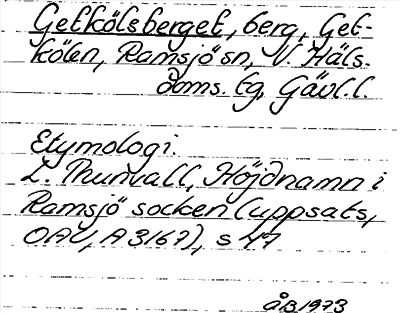 Getkölsberget, berg, Get-
kölen, Ramsjö sn, V. Häls.
doms. tg, Gävl. l.
Etymologi.
L. Thunvall, Höjdnamn i
Ramsjö socken (uppsats,
OAU, A 3167), s 47
ÅB 1973